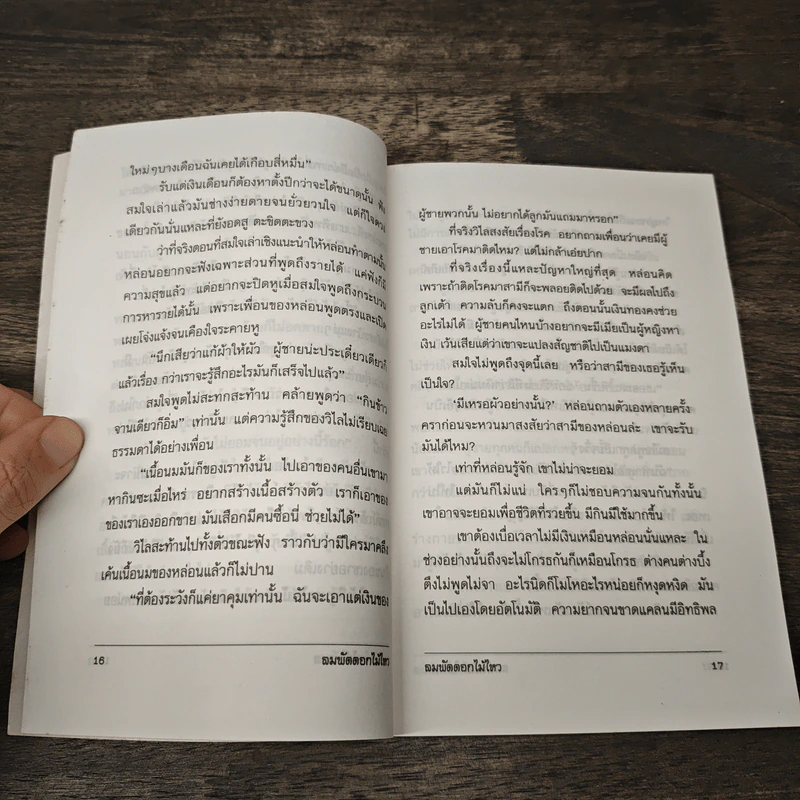 ใหม่ๆบางเดือนฉันเคยได้เกือบสี่หมื่น”
รับแต่เงินเดือนก็ต้องหาตั้งปีกว่าจะได้ขนาดนั้น ฟัง
สมใจเล่าแล้วมันช่างง่ายดายจนยั่วยวนใจ แต่ก็ใจดวง
เดียวกันนั่นแหละที่ยังอดสู ตะขิดตะขวง
ว่าที่จริงตอนที่สมใจเล่าเชิงแนะนำให้หล่อนทำตามนั้น
หล่อนอยากจะฟังเฉพาะส่วนที่พูดถึงรายได้ แค่ฟังก็มี
ความสุขแล้ว แต่อยากจะปิดหูเมื่อสมใจพูดถึงกระบวน
การหารายได้นั้น เพราะเพื่อนของหล่อนพูดตรงและเปิด
เผยโจ่งแจ้งจนเคืองใจระคายหู
“นึกเสียว่าแก้ผ้าให้ผัว ผู้ชายน่ะประเดี๋ยวเดียวก็
แล้วเรื่อง กว่าเราจะรู้สึกอะไรมันก็เสร็จไปแล้ว”
สมใจพูดไม่สะทกสะท้าน คล้ายพูดว่า “กินข้าว
จานเดียวก็อิ่ม” เท่านั้น แต่ความรู้สึกของวิไลไม่เรียบเฉย
ธรรมดาได้อย่างเพื่อน
“เนื้อนมมันก็ของเราทั้งนั้น ไปเอาของคนอื่นเขามา
หากินซะเมื่อไหร่ อยากสร้างเนื้อสร้างตัว เราก็เอาของ
ของเราเองออกขาย มันเสือกมีคนซื้อนี่ ช่วยไม่ได้”
วิไลสะท้านไปทั้งตัวขณะฟัง ราวกับว่ามีใครมาคลึง
เค้นเนื้อนมของหล่อนแล้วก็ไม่ปาน
“ที่ต้องระวังก็แค่ยาคุมเท่านั้น ฉันจะเอาแต่เงินของ
16 ลมพัดดอกไม้ไหว
ผู้ชายพวกนั้น ไม่อยากได้ลูกมันแถมมาหรอก”
ที่จริงวิไลสงสัยเรื่องโรค อยากถามเพื่อนว่าเคยมีผู้
ชายเอาโรคมาติดไหม? แต่ไม่กล้าเอ่ยปาก
ที่จริงเรื่องนี้แหละปัญหาใหญ่ที่สุด หล่อนคิด
เพราะถ้าติดโรคมาสามีก็จะพลอยติดไปด้วย จะมีผลไปถึง
ลูกเต้า ความลับก็คงจะแตก ถึงตอนนั้นเงินทองคงช่วย
อะไรไม่ได้ ผู้ชายคนไหนบ้างอยากจะมีเมียเป็นผู้หญิงหา
เงิน เว้นเสียแต่ว่าเขาจะแปลงสัญชาติไปเป็นแมงดา
สมใจไม่พูดถึงจุดนี้เลย หรือว่าสามีของเธอรู้เห็น
เป็นใจ?
‘มีเหรอผัวอย่างนั้น?’ หล่อนถามตัวเองหลายครั้ง
คราก่อนจะหวนมาสงสัยว่าสามีของหล่อนล่ะ เขาจะรับ
มันได้ไหม?
เท่าที่หล่อนรู้จัก เขาไม่น่าจะยอม
แต่มันก็ไม่แน่ ใครๆก็ไม่ชอบความจนกันทั้งนั้น
เขาอาจจะยอมเพื่อชีวิตที่รวยขึ้น มีกินมีใช้มากขึ้น
เขาต้องเบื่อเวลาไม่มีเงินเหมือนหล่อนนั่นแหละ ใน
ช่วงอย่างนั้นถึงจะไม่โกรธกันก็เหมือนโกรธ ต่างคนต่างบึ้ง
ตึงไม่พูดไม่จา อะไรนิดก็โมโหอะไรหน่อยก็หงุดหงิด มัน
เป็นไปเองโดยอัตโนมัติ ความยากจนขาดแคลนมีอิทธิพล
ลมพัดดอกไม้ไหว 17